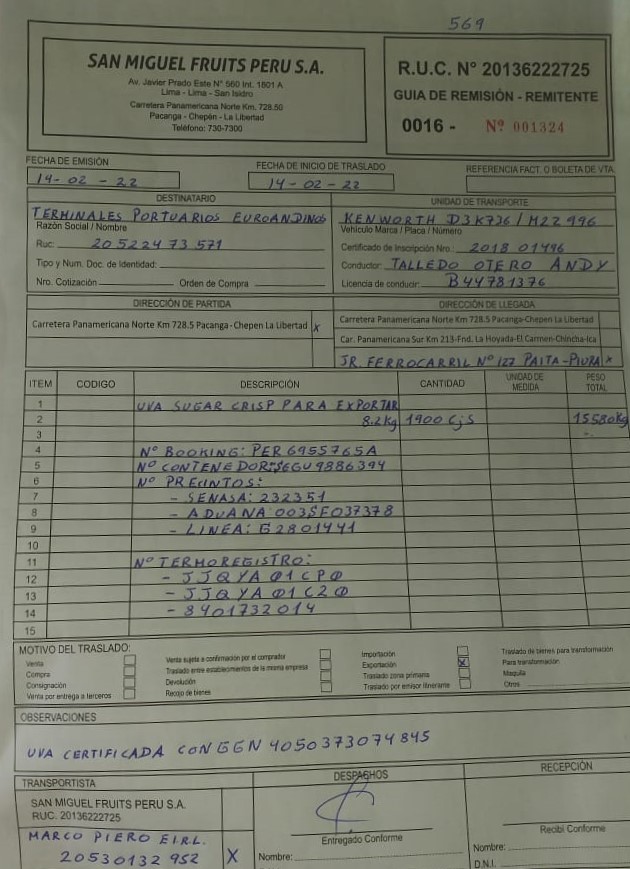 569
SAN MIGUEL FRUITS PERU S.A.
Av. Javier Prado Este N° 560 Int. 1801 A
Lima - Lima - San Isidro
Carretera Panamericana Norte Km. 728.50
Pacanga - Chepén - La Libertad
Teléfono: 730-7300
R.U.C. N° 20136222725
GUIA DE REMISIÓN - REMITENTE
0016 - Nº 001324
FECHA DE EMISIÓN
14-02-22
FECHA DE INICIO DE TRASLADO
14-02-22
REFERENCIA FACT. O BOLETA DE VTA.
DESTINATARIO
TERMINALES PORTUARIOS EUROANDINOS
Razón Social / Nombre
Ruc: 20522473571
Tipo y Num. Doc. de Identidad:
Nro. Cotización Orden de Compra
UNIDAD DE TRANSPORTE
KENWORTH D3K736/M22996
Vehículo Marca / Placa / Número
Certificado de Inscripción Nro.: 2018 01496
Conductor: TALLEDO OTERO ANDY
Licencia de conducir: B44781376
DIRECCIÓN DE PARTIDA
Carretera Panamericana Norte Km 728.5 Pacanga-Chepen La Libertad x
DIRECCIÓN DE LLEGADA
Carretera Panamericana Norte Km 728.5 Pacanga-Chepen La Libertad
Car. Panamericana Sur Km 213-Fnd. La Hoyada-El Carmen-Chincha-Ica
JR. FERROCARRIL Nº 127 PAITA-PIURA x
ITEM CODIGO DESCRIPCIÓN CANTIDAD UNIDAD DE MEDIDA PESO TOTAL
1 UVA SUGAR CRISP PARA EXPORTAR
2 8.2kg 1900 CjS 15580kg
3
4 Nº BOOKING: PER 6955765A
5 Nº CONTENEDOR: SEGU 9886394
6 Nº PRECINTOS:
7 - SENASA: 232351
8 - ADUANA: 003SF037378
9 - LINEA: G2801441
10
11 Nº TERMOREGISTRO:
12 - JJQYA01CP0
13 - JJQYA01C20
14 - 8401732014
15
MOTIVO DEL TRASLADO:
Venta
Compra
Consignación
Venta por entrega a terceros
Venta sujeta a confirmación por el comprador
Traslado entre establecimientos de la misma empresa
Devolución
Recojo de bienes
Importación
Exportación x
Traslado zona primaria
Traslado por emisor itinerante
Traslado de bienes para transformación
Para transformación
Maquila
Otros
OBSERVACIONES
UVA CERTIFICADA CON GGN 4050373074845
TRANSPORTISTA
SAN MIGUEL FRUITS PERU S.A.
RUC. 20136222725
MARCO PIERO E.I.R.L.
20530132952 X
DESPACHOS
Entregado Conforme
Nombre:
RECEPCIÓN
Recibí Conforme
Nombre:
D.N.I.